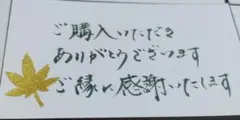 ご購入いただき
ありがとうございます
ご縁に感謝いたします